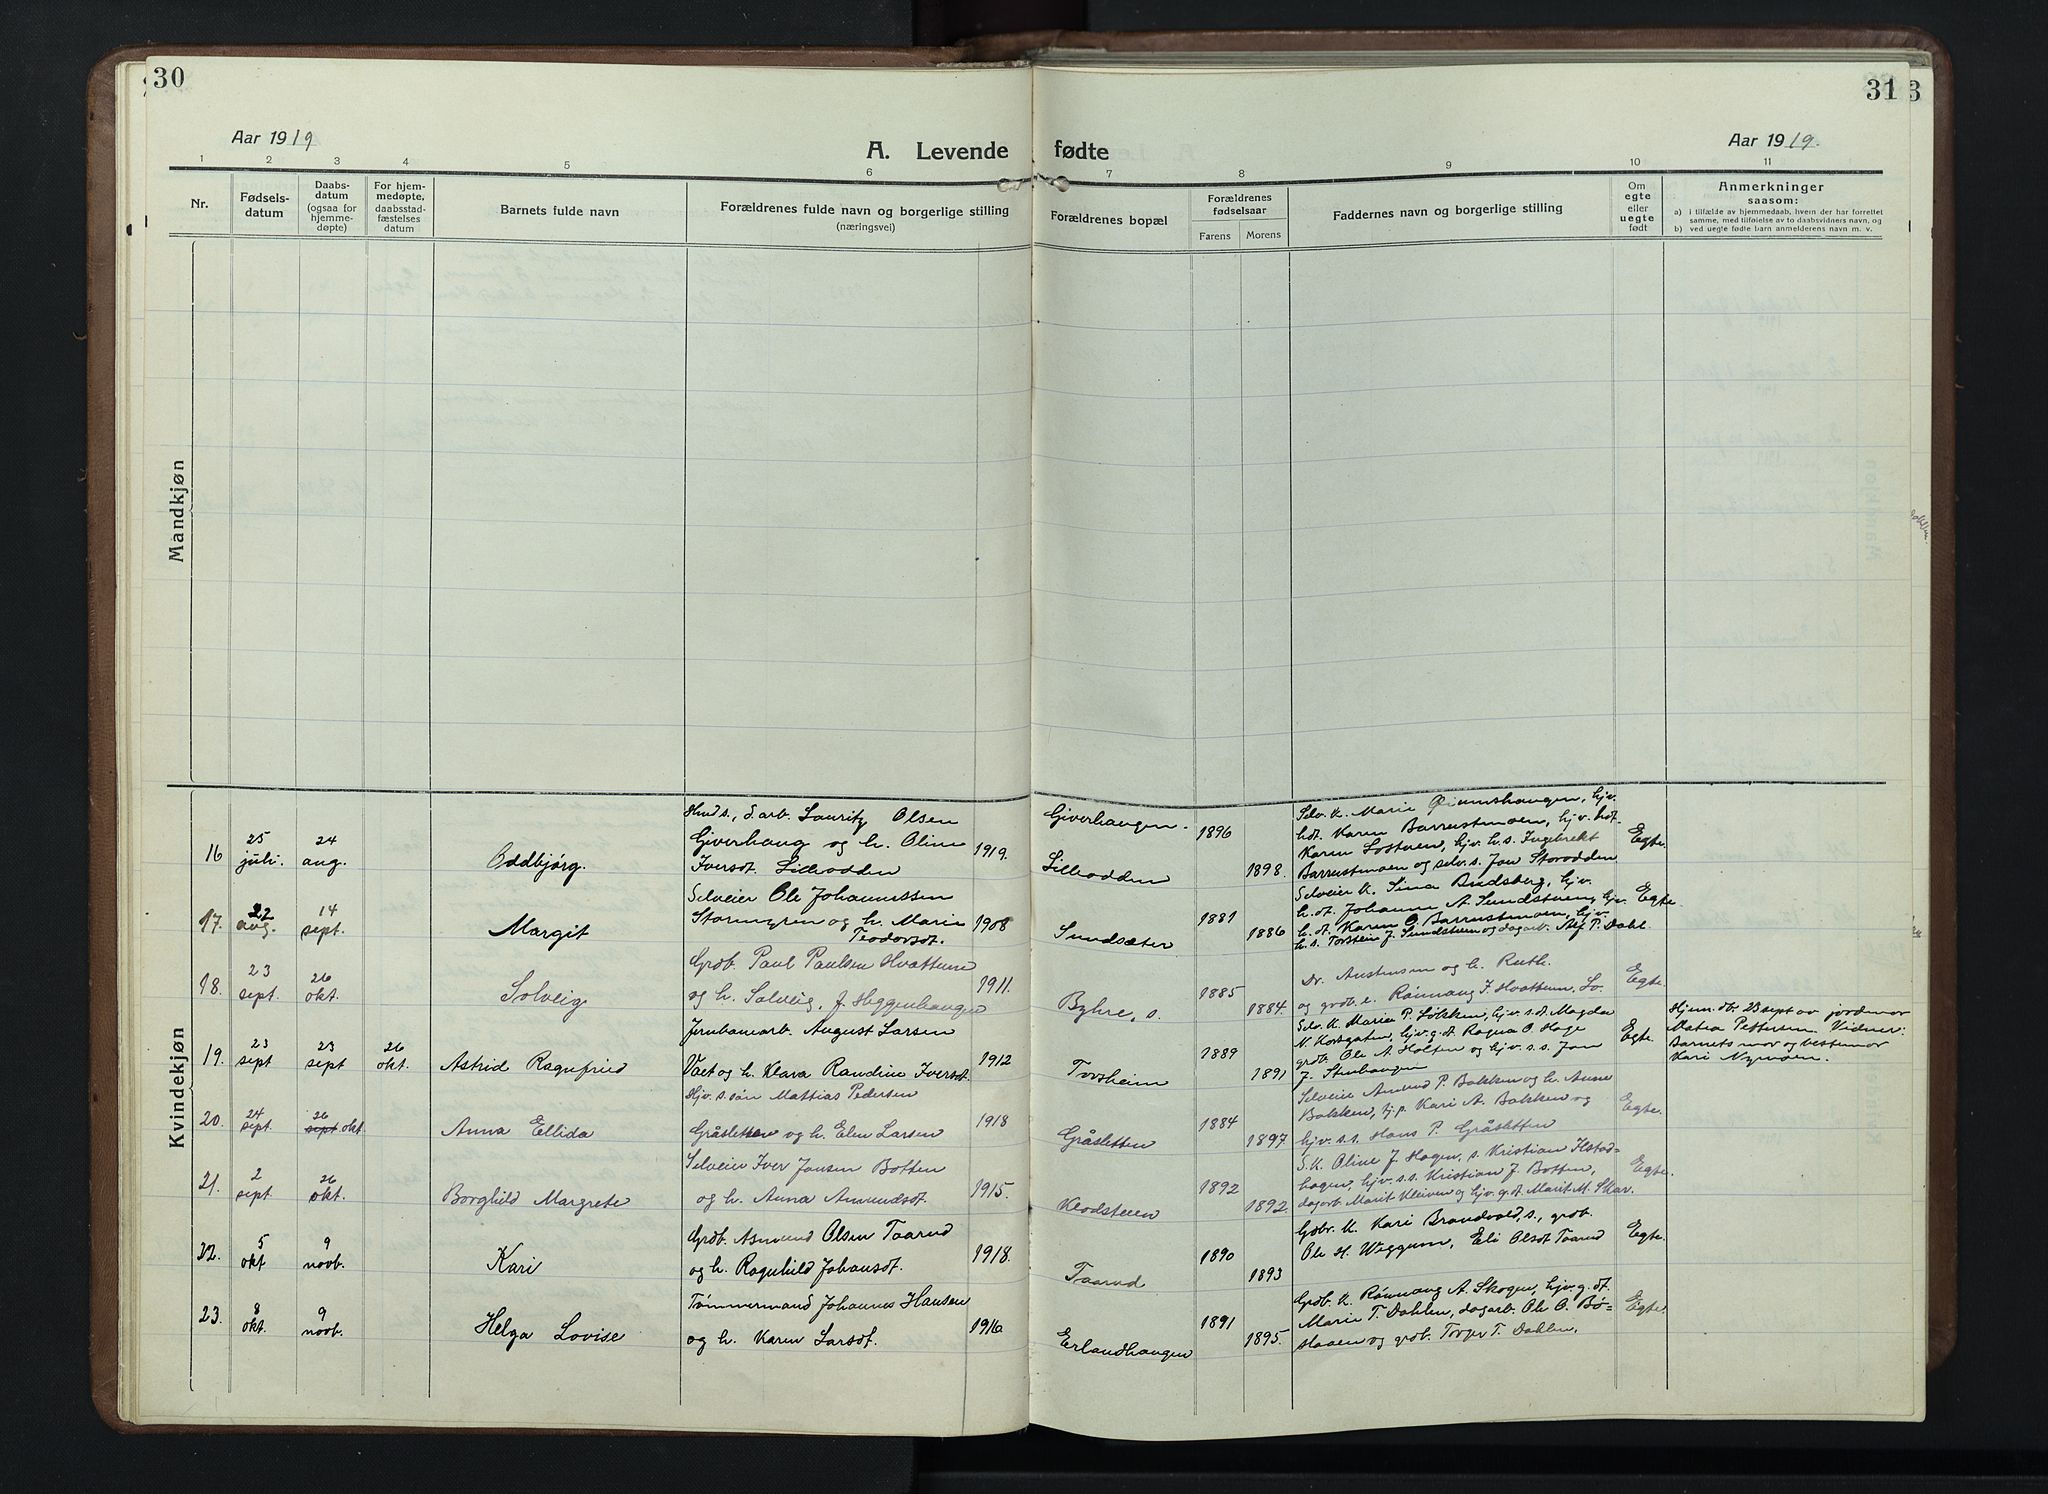 30
31
3
Aar 1919
A. Levende fødte
Aar 1919.
1 2 3 4 5 6 7 8 9 10 11
Nr.
Fødsels-
datum
Daabs-
datum
(ogsaa for
hjemme-
døpte)
For hjem-
medøpte,
daabsstad-
fæstelses
datum
Barnets fulde navn
Forældrenes fulde navn og borgerlige stilling
(næringsvei)
Forældrenes bopæl
Forældrenes
fødselsaar
Farens Morens
Faddernes navn og borgerlige stilling
Om
egte
eller
uegte
født
Anmerkninger
saasom:
a) i tilfælde av hjemmedaab, hvem der har forrettet
samme, med tilføielse av to daabsvidners navn, og
b) ved uegte fødte barn anmelderens navn m. v.
Mandkjøn
Kvindekjøn
16
25
juli.
24
aug.
Oddbjørg.
Hmd s., d. arb. Lauritz Olsen
Giverhaug og h. Oline
Iversdt. Lilleodden
1919.
Giverhaugen.
Lilleodden
1896
1898.
Selv. k. Marie Øiumshaugen, hjv.
hdt. Karen Barrustmoen, hjv. hdt.
Karen Lostuen, hjv. h. s. Ingebrekt
Barrustmoen og selv. s. Jon Storodden
Egte.
17.
22
aug.
14
sept.
Margit
Selveier Ole Johannessen
Stormyren og h. Marie
Teodorsdt.
1908
Sundsæter
1881
1886
Selveier k. Sina Budsberg, hjv.
h. dt. Johanne A. Sundstuen, hjv.
h. dt. Karen O Barrustmoen, hjv.
h. s. Torstein J. Sundstuen og dagarb. Alf P. Dahl.
Egte.
18.
23
sept.
26
okt.
Solveig
Grdb. Paul Paulsen Hvattum
og h. Solveig, f. Heggenhaugen
1911.
Byhre, s.
1885
1884.
Dr. Austensen og h. Ruth.
og grdb. e. Rønnaug J. Hvattum, So.
Egte.
19.
23
sept
23
sept
26
okt.
Astrid Ragnfrid
Jernbanearb. August Larsen
Vaet og h. Klara Randine Iversdt.
1912
Torsheim
1889
1891
Selv. k. Maria P. Løkken, hjv. s. dt. Magda
N. Korsgaten, hjv. g. dt. Ragna O. Hage
grdb. Ole A. Holten og hjv. s. s. Jon
J. Stenhaugen
Egte.
Hjem. db. 23 sept av jordmor
Matea Pettersen. Vidner:
Barnets mor og bestemor
Kari Nymoen.
20.
24
sept.
26
sept okt.
Anna Ellida
Hjv. s. søn Mattias Pedersen
Gråsletten og h. Elen Larsen
1918
Gråsletten
1884
1897.
Selveier Amund P. Bakken og h. Anne
Bakken, hj. p. Kari A. Bakken og
hjv. s. s. Hans P. Gråsletten
Egte.
21.
2
sept.
26
okt.
Borghild Margrete
Selveier Iver Jonsen Botten
og h. Anna Amundsdt.
1915.
Klodsteen
1892
1892.
S. k. Oline J. Hagen, s. Kristian Ilstad-
hagen, hjv. s. s. Kristian J. Botten,
dagarb. Marit Kleiven og hjv. g. dt. Marit M. Skar.
Egte.
22.
5
okt
9
novb.
Kari
Grdb. Asmund Olsen Taarud
og h. Ragnhild Johansdt.
1918.
Taarud
1890
1893
Gdbr. k. Kari Brandvold, s., grdb.
Ole H. Wiggum, Eli Olsdt Taarud
Egte.
23.
8
okt.
9
novb.
Helga Lovise
Tømmermand Johannes Hansen
og h. Karen Larsdt.
1916
Erlandhaugen
1891
1895.
Grdb. k. Rønnaug A. Skogen, hjv. g. dt.
Marie T. Dahlen, dagarb. Ole O. Bø=
Haaen og grdb. Torger T. Dahlen.
Egte.